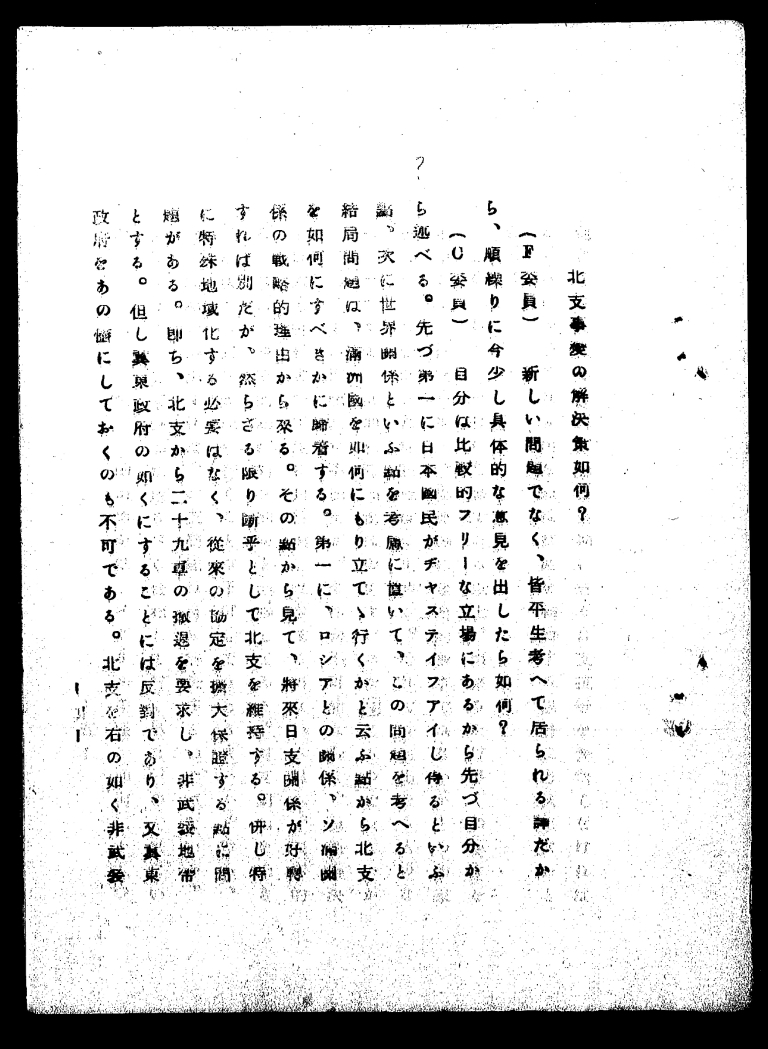 北支事変の解決策如何？
（F委員）　新しい問題でなく、皆平生考へて居られる譯だか
ら、順繰りに今少し具体的な意見を出したら如何？
（C委員）　自分は比較的フリーな立場にあるから先づ自分か
ら述べる。先づ第一に日本國民がヂヤステイフアイし得るといふ
點、次に世界關係といふ點を考慮に置いて、この問題を考へると
結局問題は、滿洲國を如何にもり立てゝ行くかと云ふ點から北支
を如何にすべきかに歸着する。第一に、ロシアとの關係、ソ滿關
係の戰略的理由から來る。その點から見て、將來日支關係が好轉
すれば別だが、然らざる限り斷乎として北支を維持する。併し特
に特殊地域化する必要はなく、從來の協定を擴大保證する點に問
題がある。即ち、北支から二十九軍の撤退を要求し、非武裝地帶
とする。但し冀東政府の如くにすることには反對であり、又冀東
政府をあの儘にしておくのも不可である。北支を右の如く非武裝